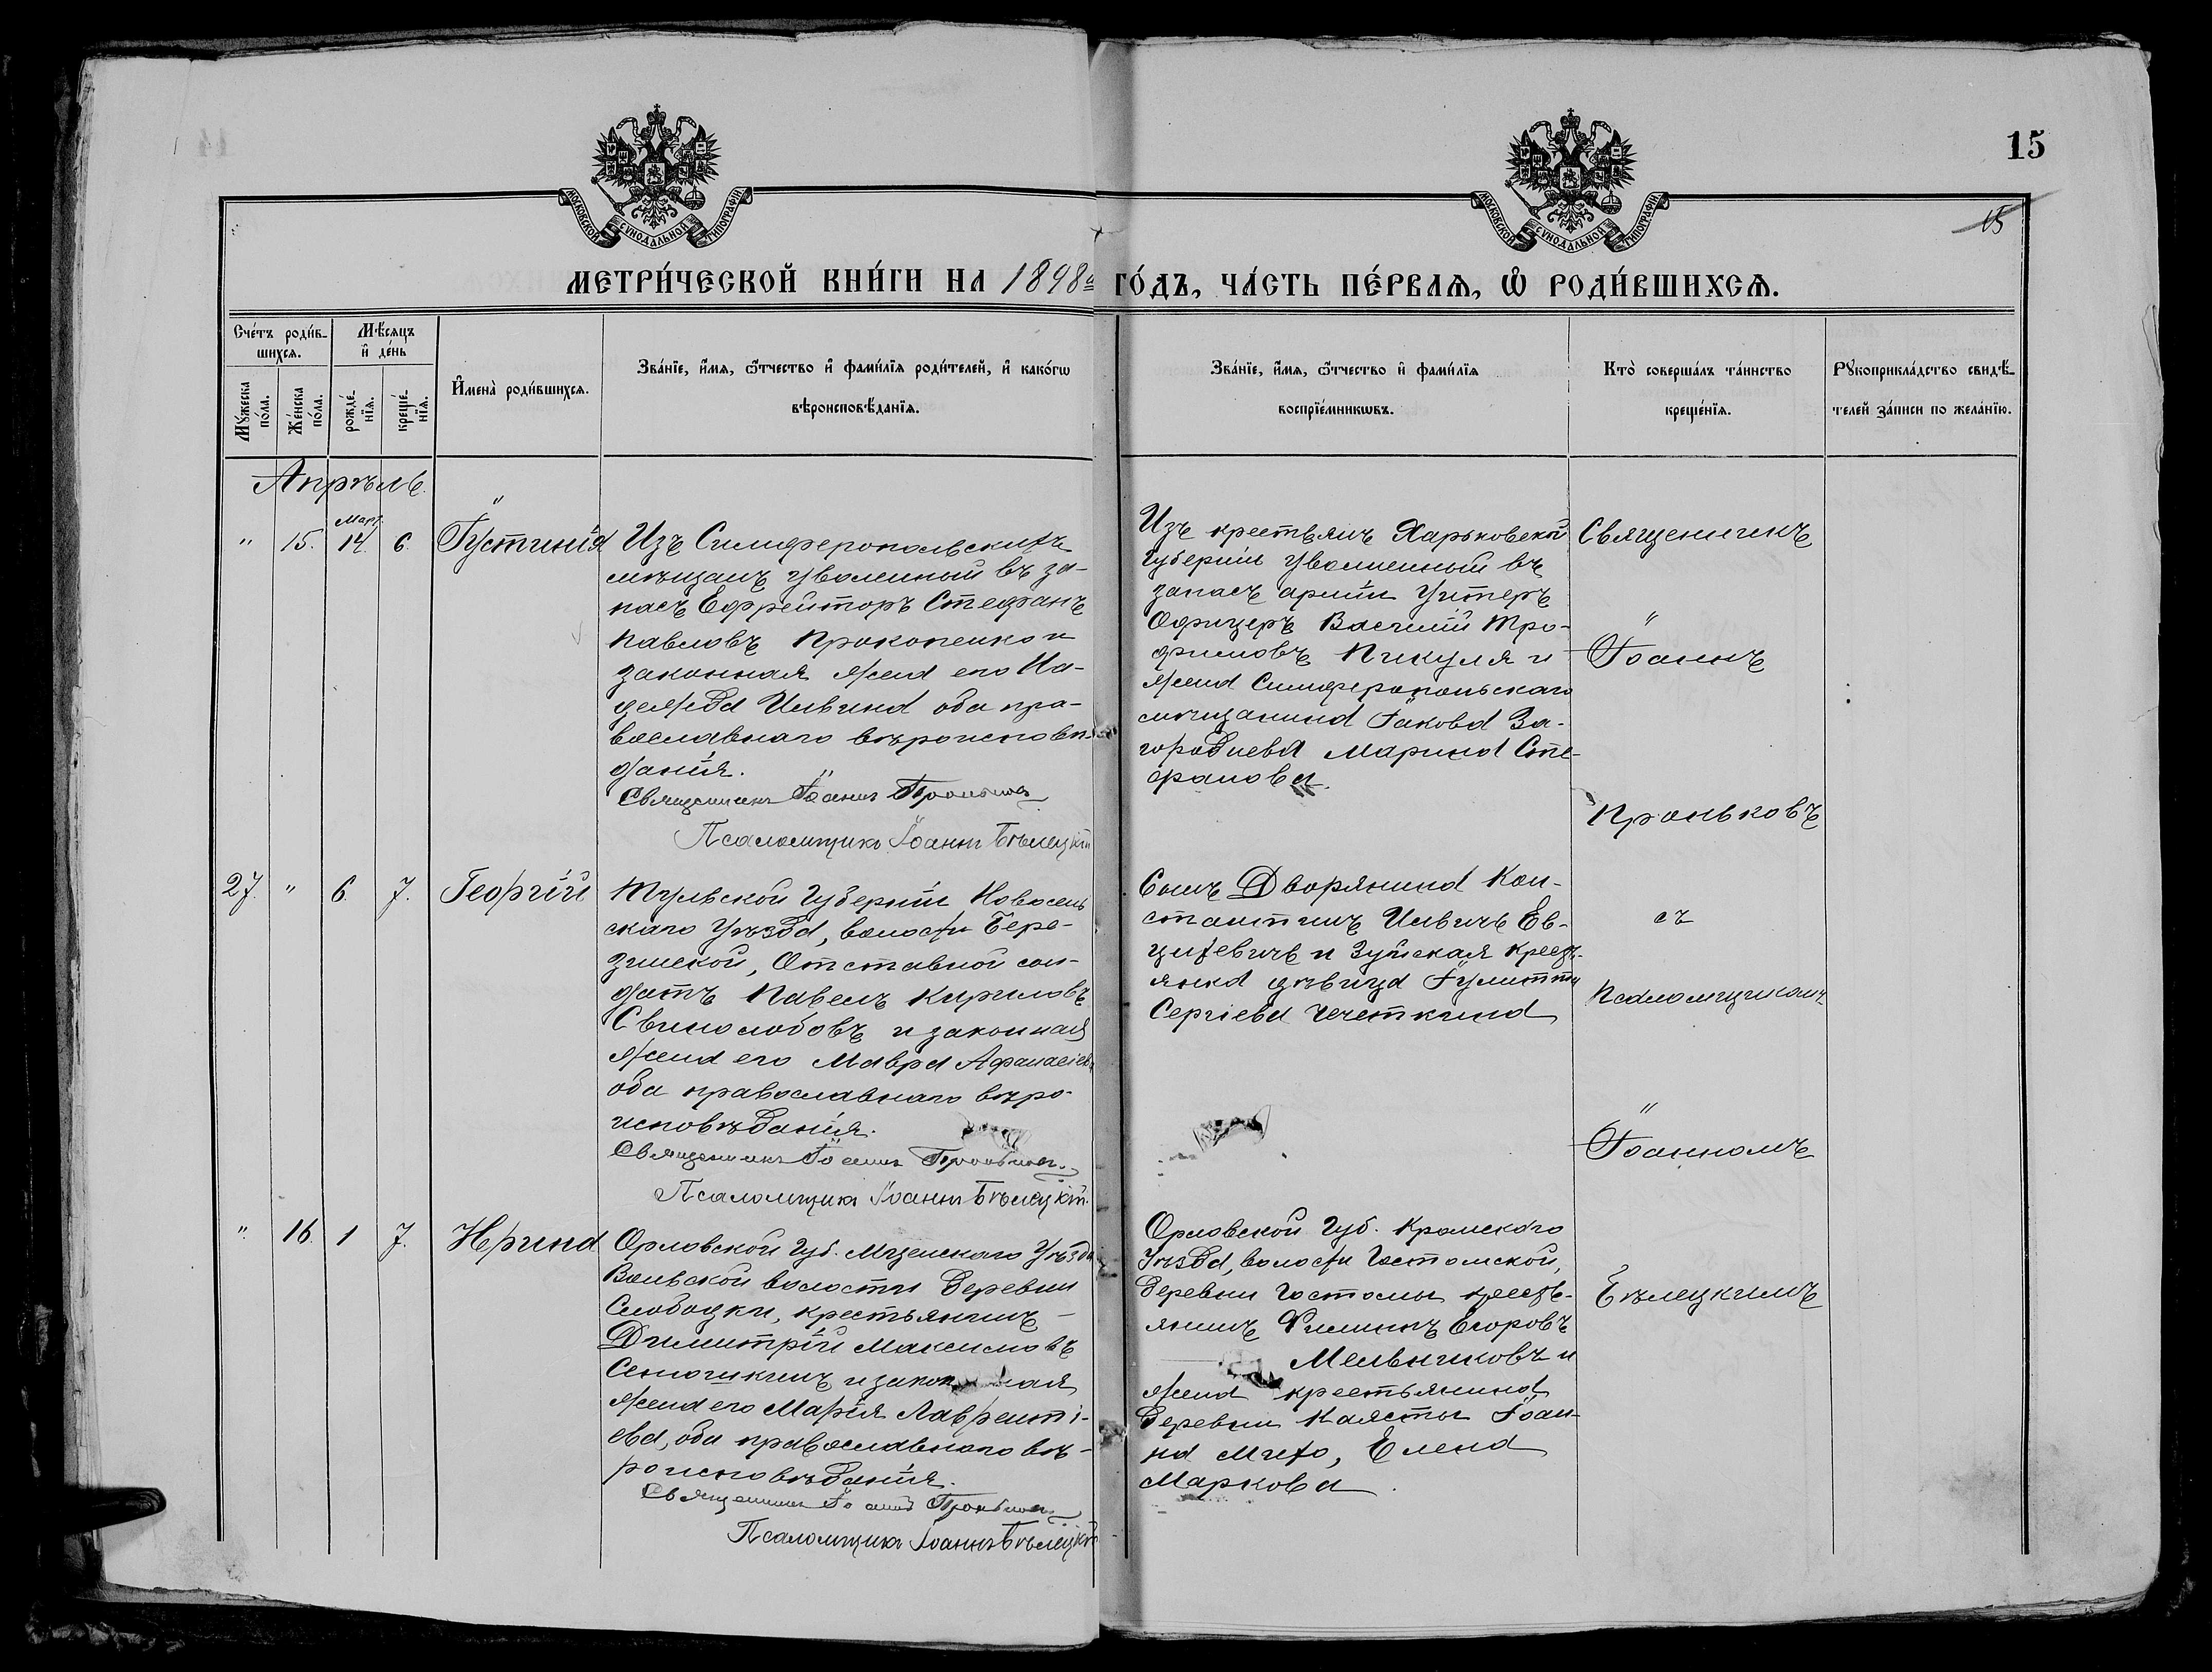 15
15
МОСКОВСКОЙ СѴНОДАЛЬНОЙ ТИПОГРАФІИ
МОСКОВСКОЙ СѴНОДАЛЬНОЙ ТИПОГРАФІИ
МЕТРИ́ЧЕСКОЙ КНИ́ГИ НА 1898й ГО́ДЪ, ЧА́СТЬ ПЕ́РВАѦ, Ѡ҆ РОДИ́ВШИХСѦ.
Сче́тъ роди́в-
шихсѧ.
Мѣ́сѧцъ
и҆ де́нь
Мꙋ́жеска
по́ла.
Же́нска
по́ла.
рожде́-
нїѧ.
креще́-
нїѧ.
И҆мена̀ роди́вшихсѧ.
Зва́нїе, и҆́мѧ, ѻ҆́тчество и҆ фами́лїѧ роди́телей, и҆ како́гѡ
вѣроисповѣ́данїѧ.
Зва́нїе, и҆́мѧ, ѻ҆́тчество и҆ фами́лїѧ
воспрїе́мникѡвъ.
Кто̀ соверша́лъ та́инство
креще́нїѧ.
Рꙋкоприкла́дство свидѣ́-
телей за́писи по жела́нїю.
Апрѣль.
" 15. Март. 14. 6. Іустинія
Изъ Симферопольскихъ
мѣщанъ уволенный въ за-
пасъ Ефрейторъ Стефанъ
Павловъ Прокопенко и
законная жена его На-
дежда Ильина оба пра-
вославнаго вѣроисповѣ-
данія.
Священникъ Іоаннъ Проньковъ
Псаломщикъ Іоаннъ Бѣлецкій
Изъ крестьянъ Харьковской
Губерніи уволенный въ
запасъ арміи Унтеръ
Офицеръ Василій Тро-
фимовъ Пикуля и
жена Симферопольскаго
мѣщанина Іакова За-
городнева Марина Сте-
фанова.
Священникъ
Іоаннъ
Проньковъ
27. " 6. 7. Георгій
Тульской Губерніи Новосель
скаго Уѣзда, волости Бере-
зинской, Отставной сол-
датъ Павелъ Кириловъ
Свинолобовъ и законная
жена его Мавра Афанасіева
оба православнаго вѣро-
исповѣданія.
Священникъ Іоаннъ Проньковъ
Псаломщикъ Іоаннъ Бѣлецкій.
Сынъ Дворянина Кон-
стантинъ Ильичъ Ев-
цихевичъ и Зуйская крест-
янка дѣвица Іулитта
Сергіева Чечеткина
съ
Псаломщикомъ
Іоанномъ
" 16. 1 7. Ирина
Орловской Губ. Мценскаго Уѣзда
Вольской волости деревни
Слободки, крестьянинъ
Димитрій Максимовъ
Сеногикинъ и законная
жена его Марія Лавренті-
ева, оба православнаго вѣ-
роисповѣданія.
Священникъ Іоаннъ Проньковъ
Псаломщикъ Іоаннъ Бѣлецкій
Орловской Губ. Кромскаго
Уѣзда, волости Гостомской,
деревни Гостомы крестъ-
янинъ Филиппъ Егоровъ
Мельниковъ и
жена крестьянина
деревни Каясты Іоан-
на Михо, Елена
Маркова
Бѣлецкимъ